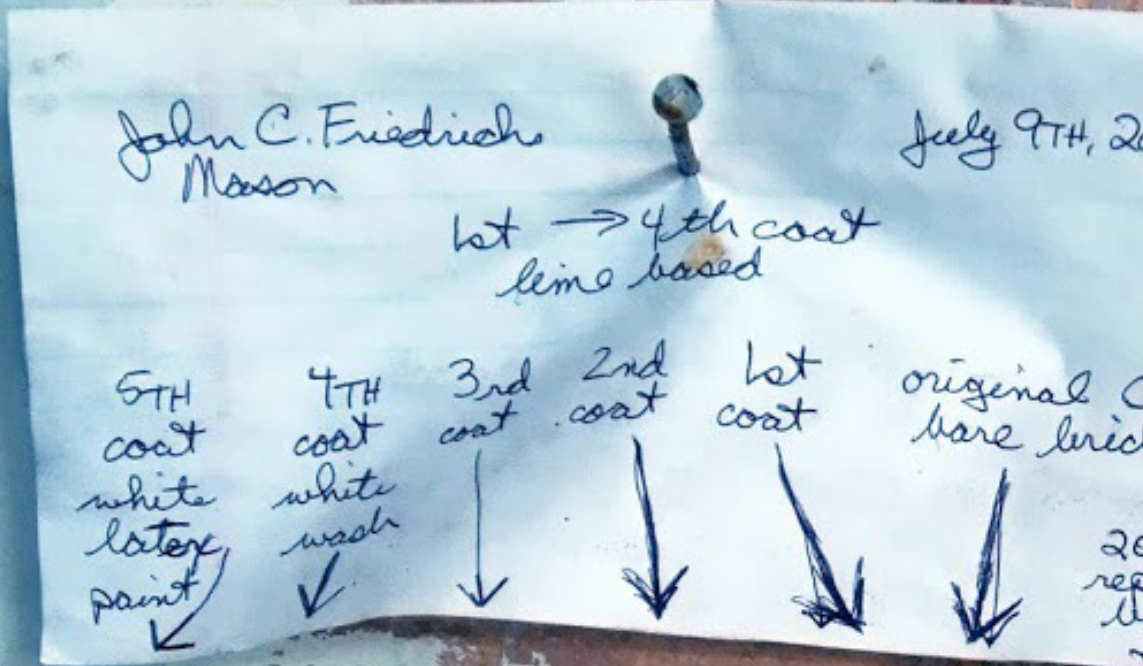 John C. Friedrich
Mason
July 9TH, 20
1st → 4th coat
lime based
5TH
coat
white
latex
paint
4TH
coat
white
wash
3rd
coat
2nd
coat
1st
coat
original
bare bric
20
rep